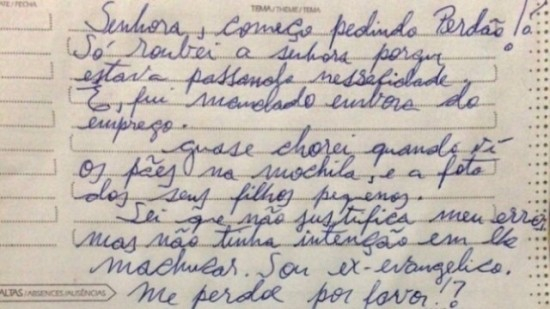 TEMA/THEME/TEMA
Senhora, começo pedindo Perdão!
Só roubei a senhora porque
estava passando nessecidade.
E, fui mandado embora do
emprego.
quase chorei quando vi
os pães na mochila, e a foto
dos seus filhos pequenos.
Sei que não justifica meu erro,
mas não tinha intenção em lhe
machucar. Sou ex-evangelico.
ALTAS/ABSENCES/AUSÊNCIAS
Me perdoe por favor!?